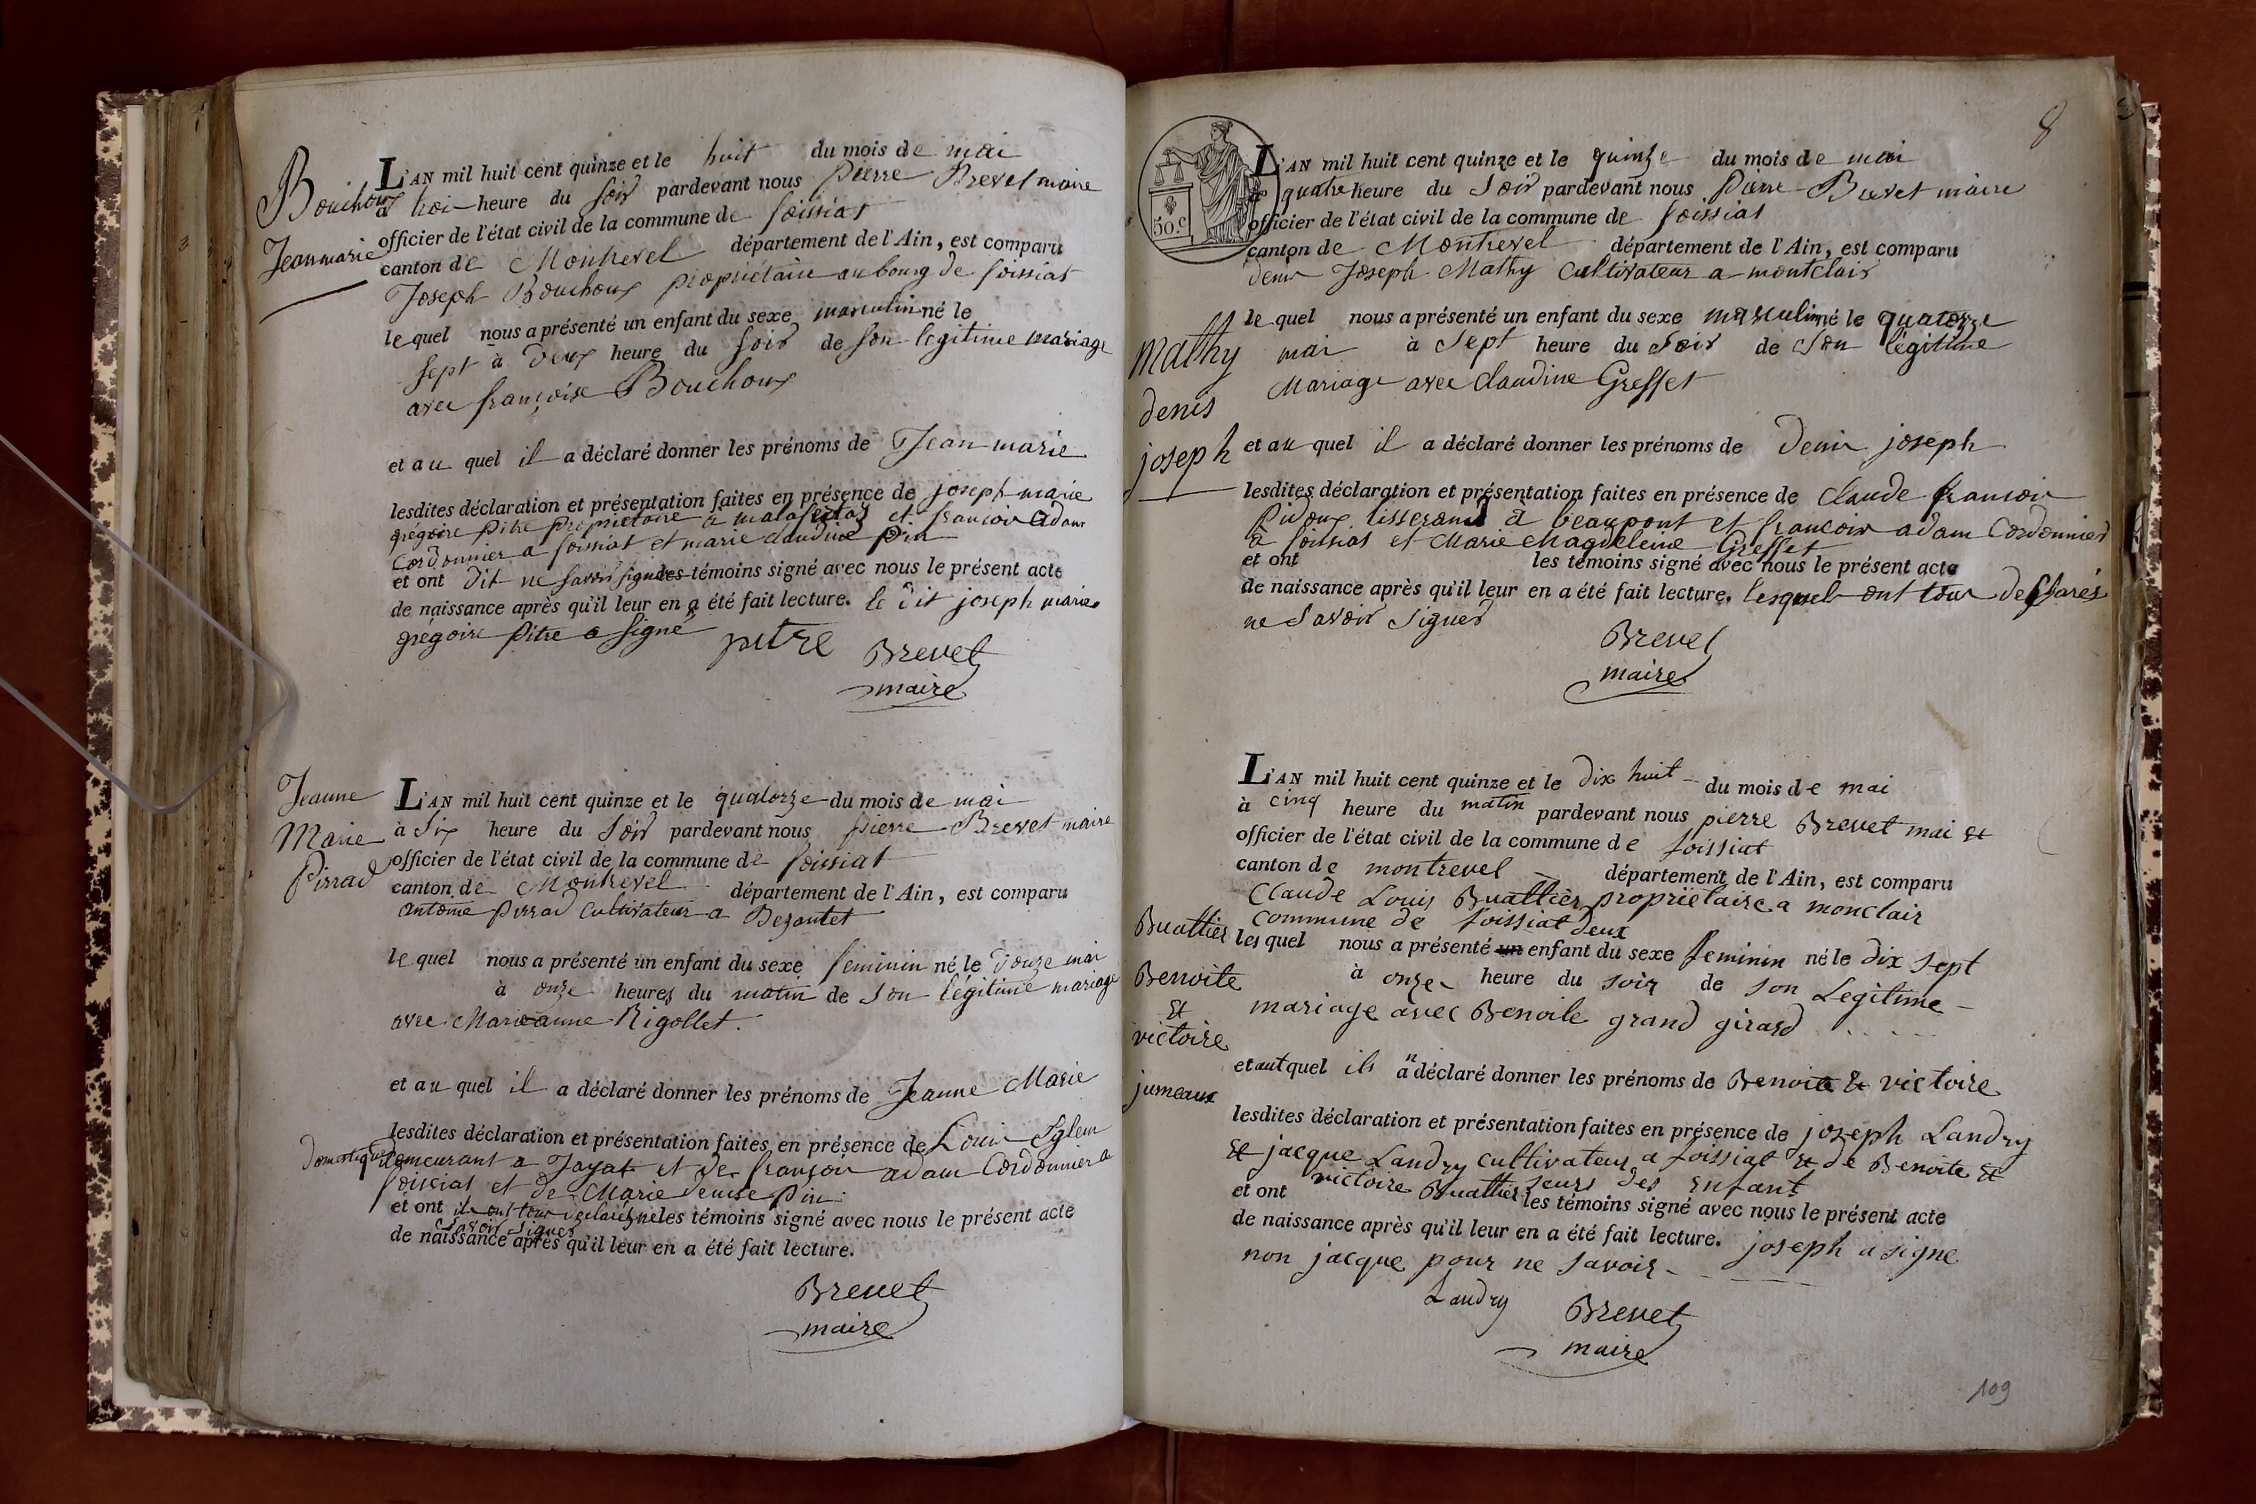 Bouchoux
Jeanmarie
L'AN mil huit cent quinze et le huit du mois de mai
à troi heure du soir pardevant nous pierre Brevet maire
officier de l'état civil de la commune de foissiat
canton de Montrevel département de l'Ain, est comparu
Joseph Bouchoux propriétaire au bourg de foissiat
le quel nous a présenté un enfant du sexe masculin né le
sept à deux heure du soir de son legitime mariage
avec françoise Bouchoux
et au quel il a déclaré donner les prénoms de Jean marie
lesdites déclaration et présentation faites en présence de joseph marie
grégoire pitre propriétaire à et françois adam
Cordonnier a foissiat et marie claudine pin
et ont dit ne savoir signer les témoins signé avec nous le présent acte
de naissance après qu'il leur en a été fait lecture. le dit joseph marie
grégoire pitre a signé
pitre Brevet
maire
Jeanne
Marie
Pirrad
L'AN mil huit cent quinze et le quatorze du mois de mai
à six heure du soir pardevant nous pierre Brevet maire
officier de l'état civil de la commune de foissiat
canton de Montrevel département de l'Ain, est comparu
antoine pirrad cultivateur a Dezoutet
le quel nous a présenté un enfant du sexe feminin né le douze mai
à onze heures du matin de son légitime mariage
avec Marieanne Rigollet.
et au quel il a déclaré donner les prénoms de Jeanne Marie
lesdites déclaration et présentation faites en présence de Louis
domestique demeurant a Jayat et de françois adam Cordonnier a
foissiat et de Marie denise pin
et ont ils ont tous déclarés ne les témoins signé avec nous le présent acte
savoir signer
de naissance après qu'il leur en a été fait lecture.
Brevet
maire
8
50.c
Mathy
denis
joseph
L'AN mil huit cent quinze et le quinze du mois de mai
à quatre heure du soir pardevant nous pierre Brevet maire
officier de l'état civil de la commune de foissiat
canton de Montrevel département de l'Ain, est comparu
denis Joseph Mathy cultivateur a montclair
le quel nous a présenté un enfant du sexe masculin né le quatorze
mai à sept heure du soir de son légitime
Mariage avec claudine Greffet
et au quel il a déclaré donner les prénoms de denis joseph
lesdites déclaration et présentation faites en présence de claude françois
pidoux tisserand a beaupont et françois adam Cordonnier
a foissiat et Marie Magdeleine Greffet
et ont les témoins signé avec nous le présent acte
de naissance après qu'il leur en a été fait lecture. lesquels ont tous déclarés
ne savoir signer
Brevet
maire
Buattier
Benoite
et
victoire
jumeaux
L'AN mil huit cent quinze et le dix huit du mois de mai
à cinq heure du matin pardevant nous pierre Brevet mai et
officier de l'état civil de la commune de foissiat
canton de montrevel département de l'Ain, est comparu
Claude Louis Buattier propriétaire a monclair
commune de foissiat deux
les quel nous a présenté un enfant du sexe feminin né le dix sept
à onze heure du soir de son Legitime
mariage avec Benoite grand girard
et aut quel ils a déclaré donner les prénoms de Benoite et victoire
lesdites déclaration et présentation faites en présence de joseph Landry
et jacque Landry cultivateur a foissiat et de Benoite et
victoire Buattier seurs des enfant
et ont les témoins signé avec nous le présent acte
de naissance après qu'il leur en a été fait lecture. joseph a signe
non jacque pour ne savoir
Landry Brevet
maire
109